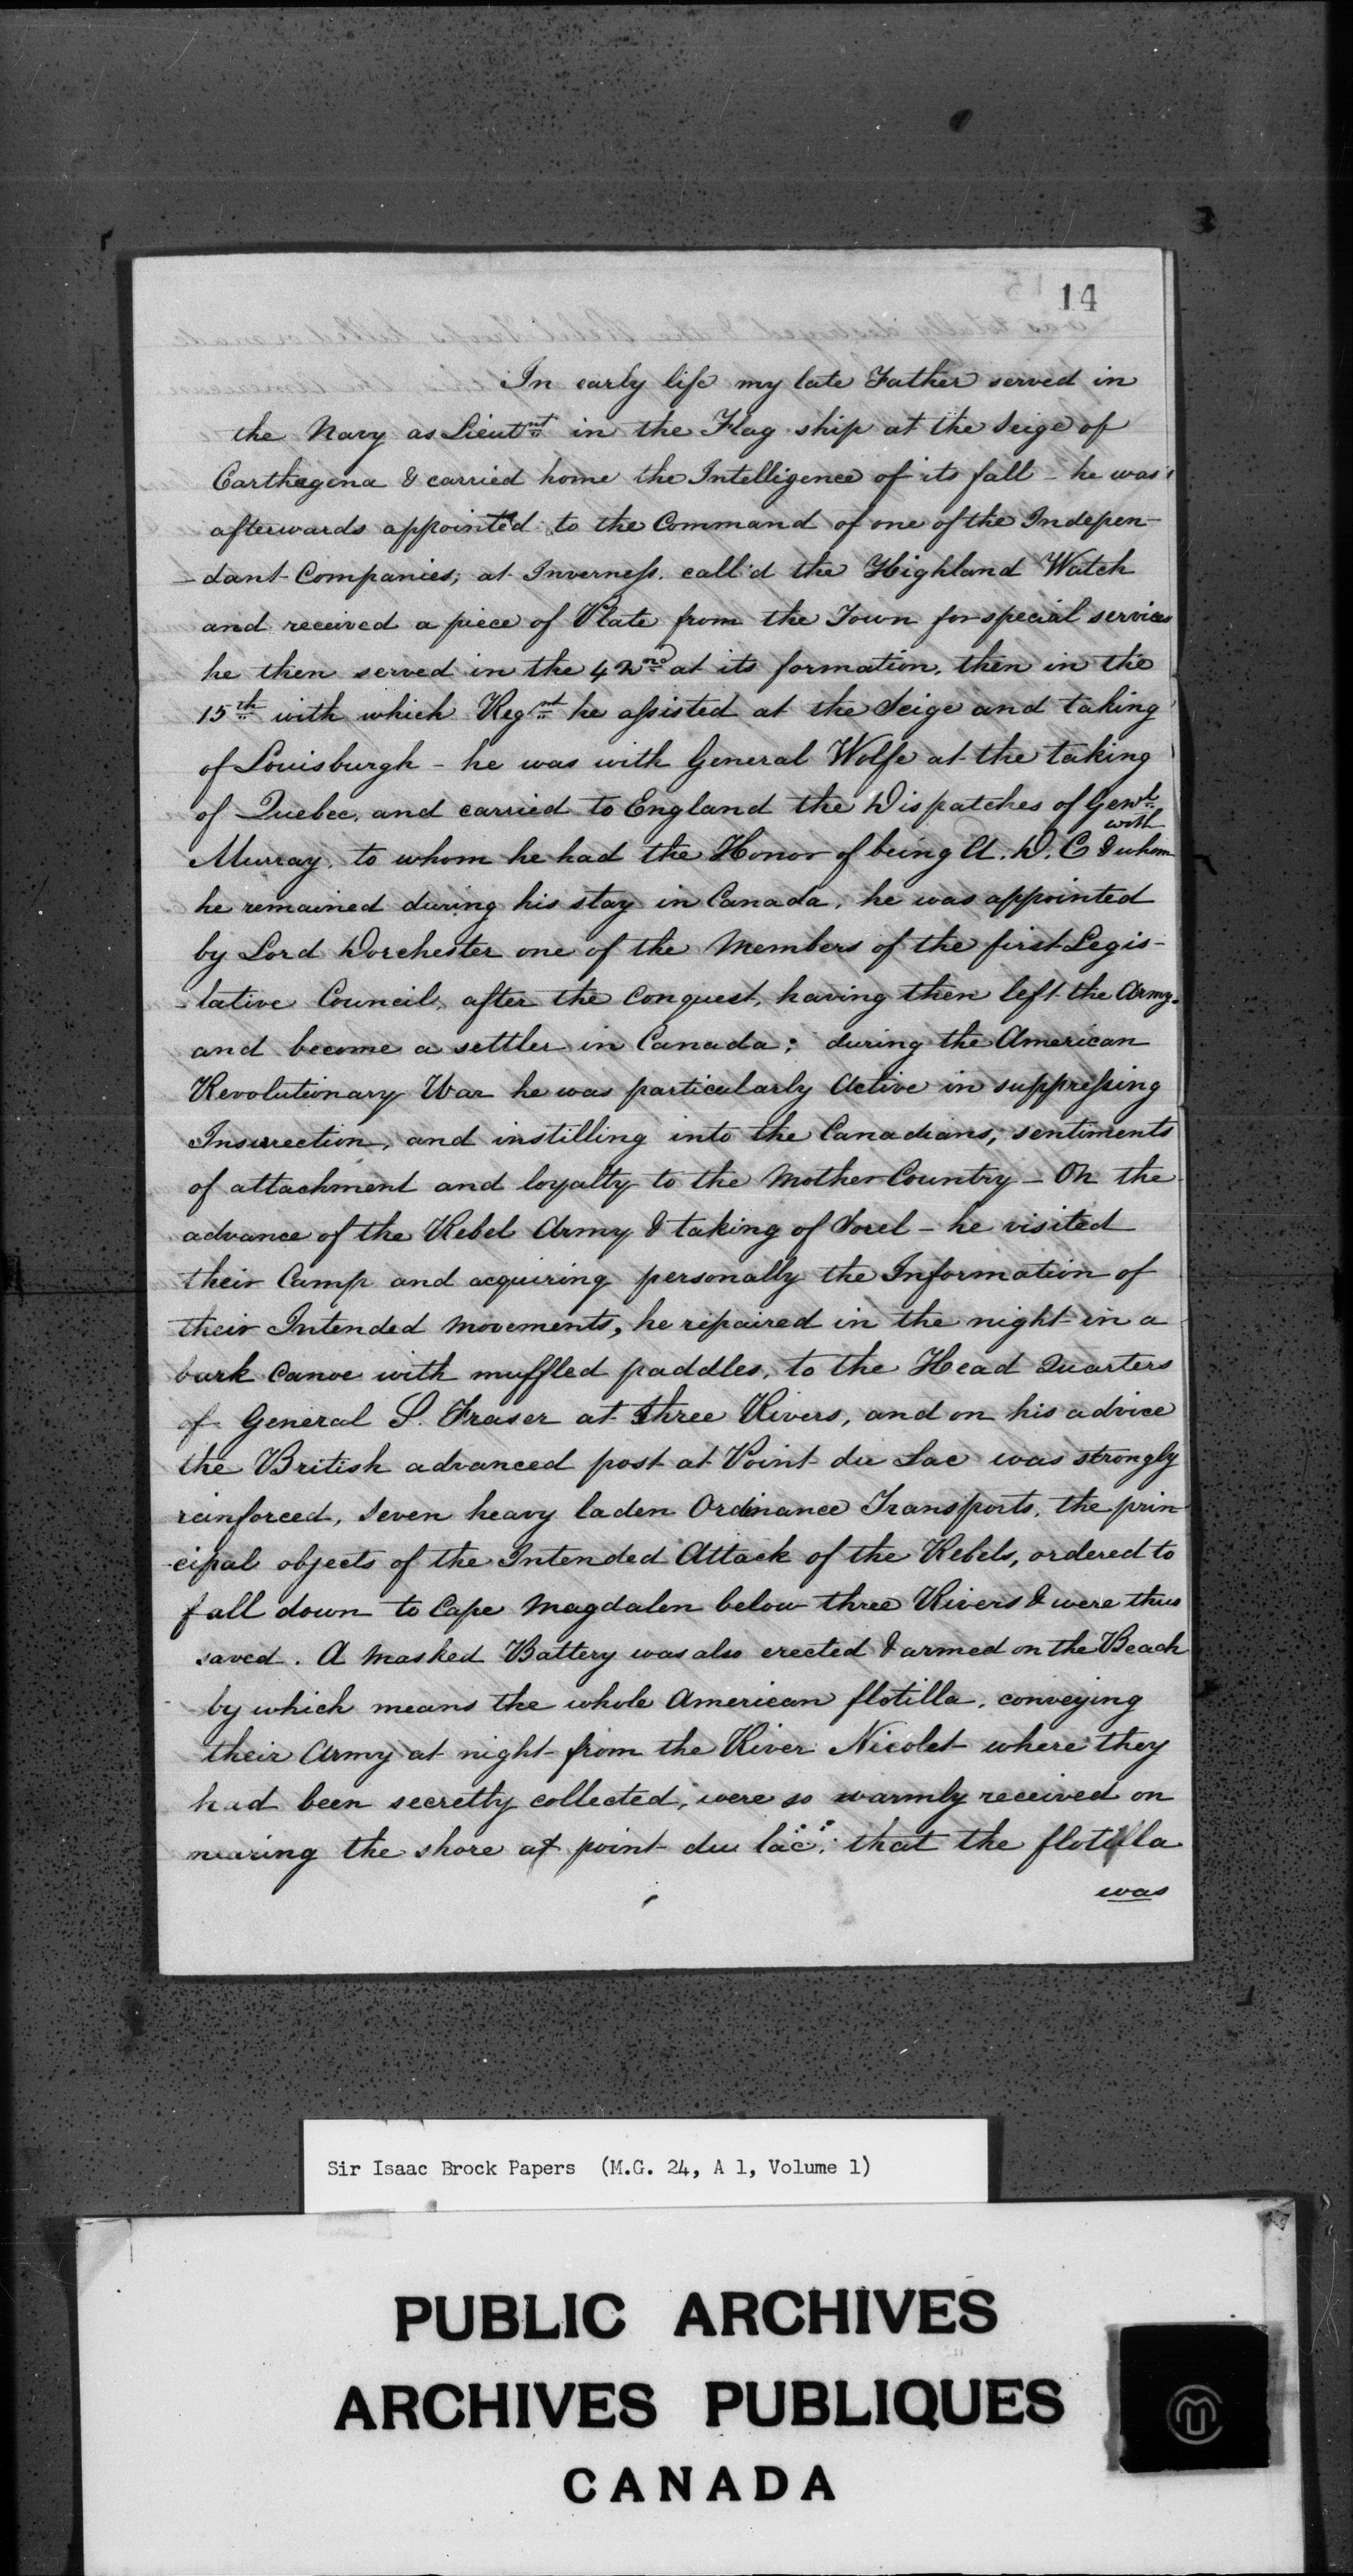 14
In early life my late Father served in
the Navy as Lieutnt in the Flag ship at the Seige of
Carthagena & carried home the Intelligence of its fall - he was
afterwards appointed to the Command of one of the Indepen-
-dant Companies; at Inverness. call'd the Highland Watch
and received a piece of Plate from the Town for special services
he then served in the 42nd at its formation, then in the
15th with which Regnt he assisted at the Seige and taking
of Louisburgh - he was with General Wolfe at the taking
of Quebec, and carried to England the Dispatches of Genl
Murray, to whom he had the Honor of being A. D. C & with whom
he remained during his stay in Canada, he was appointed
by Lord Dorchester one of the Members of the first Legis-
-lative Council, after the Conquest, having then left the Army.
and become a settler in Canada; during the American
Revolutionary War he was particularly Active in suppressing
Insurrection, and instilling into the Canadians, sentiments
of attachment and loyalty to the Mother Country - On the
advance of the Rebel Army & taking of Sorel - he visited
their Camp and acquiring personally the Information of
their Intended movements, he repaired in the night in a
bark Canoe with muffled paddles, to the Head Quarters
of General S. Fraser at three Rivers, and on his advice
the British advanced post at Point du Lac was strongly
reinforced, seven heavy laden Ordinance Transports, the prin-
-cipal objects of the Intended Attack of the Rebels, ordered to
fall down to Cape Magdalen below three Rivers & were thus
saved. A Masked Battery was also erected & armed on the Beach
by which means the whole American flotilla, conveying
their Army at night from the River Nicolet where they
had been secretly collected, were so warmly received on
nearing the shore at point du lac, that the flotilla
was
Sir Isaac Brock Papers (M.G. 24, A 1, Volume 1)
PUBLIC ARCHIVES
ARCHIVES PUBLIQUES
CANADA